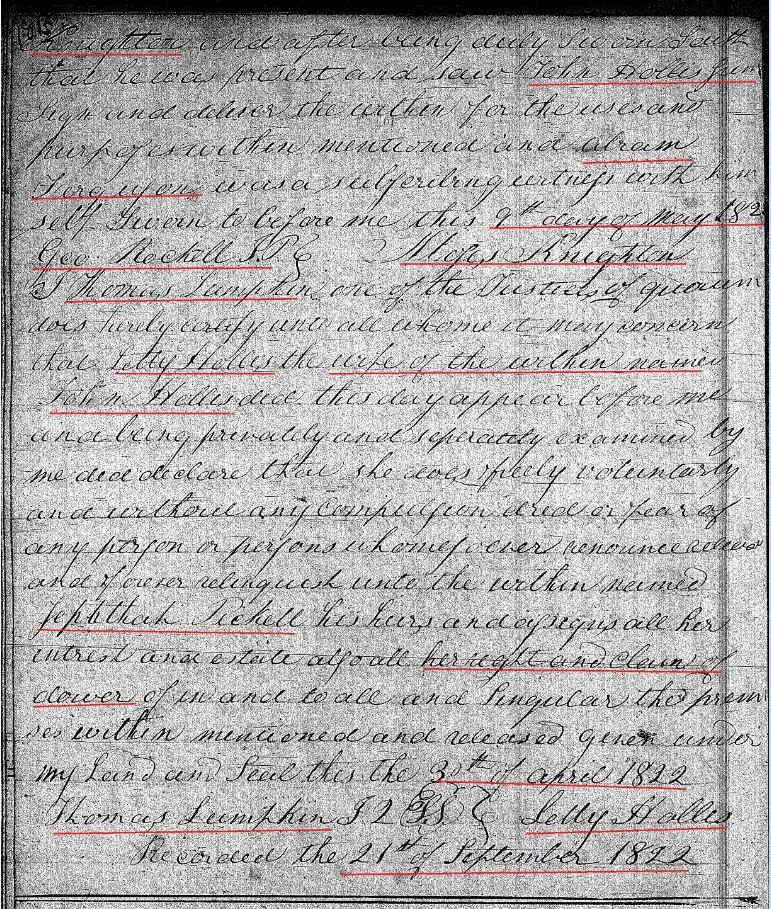 Knighton and after being duly Sworn Saith
that he was present and saw John Hollis sign
Sign and deliver the within for the uses and
purposes within mentioned and abram
Ferguson was a subscribing witness with him
self Sworn to before me this 9th day of May 182
Geo Rockell J.P Moses Knighton
I Thomas Lumpkin one of the Justices of quorum
does hereby certify unto all whome it may concern
that Letty Hollis the wife of the within named
John Hollis did this day appear before me
and being privately and seperately examined by
me did declare that she does freely voluntarly
and without any compulsion dred or fear of
any person or persons whomesoever renounce release
and forever relinquish unto the within named
Jephthah Pickell his heirs and assigns all her
intrest and estate also all her right and claim of
dower of in and to all and Singular the premi
ses within mentioned and released given under
my hand and Seal this the 30th of april 1822
Thomas Lumpkin J Q Letty Hollis
Recorded the 21th of September 1822